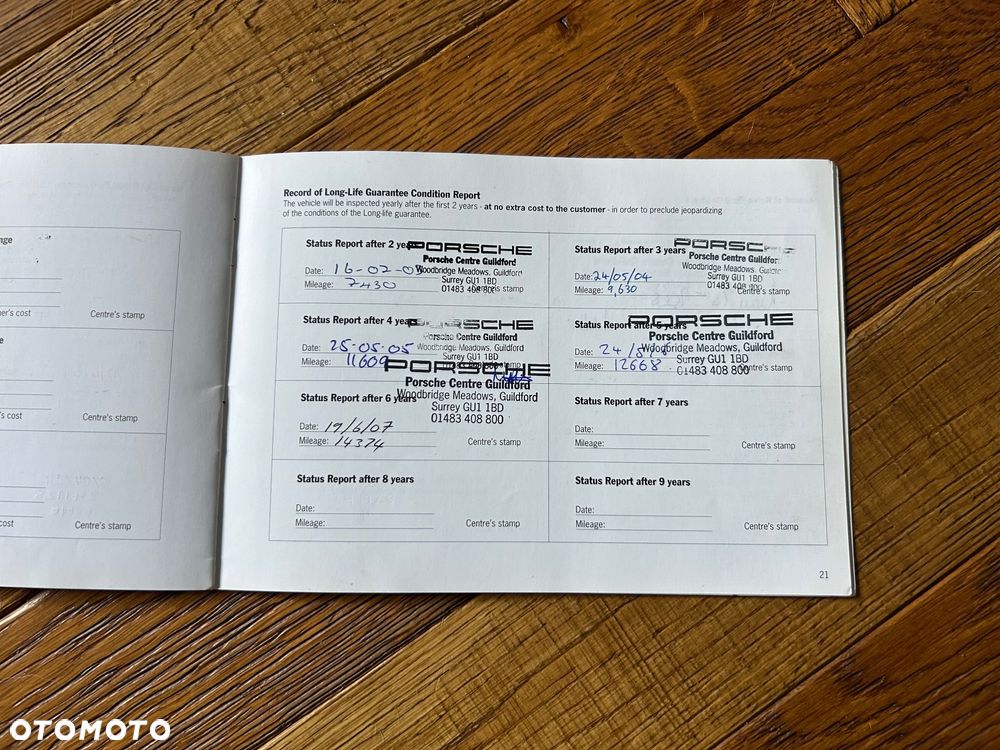 nge
er's cost
Centre's stamp
e
's cost
Centre's stamp
cost
Centre's stamp
Record of Long-Life Guarantee Condition Report
The vehicle will be inspected yearly after the first 2 years - at no extra cost to the customer - in order to preclude jeopardizing
of the conditions of the Long-life guarantee.
Status Report after 2 years
PORSCHE
Porsche Centre Guildford
Woodbridge Meadows, Guildford
Surrey GU1 1BD
01483 408 800
Date: 16-02-0
Mileage: 7430
Centre's stamp
Status Report after 3 years
PORSC
Porsche Centre Guildfor
Woodbridge Meadows, Guildfo
Surrey GU1 1BD
01483 408 800
Date: 24/05/04
Mileage: 9,630
Centre's stamp
Status Report after 4 years
PORSCHE
Porsche Centre Guildford
Woodbridge Meadows, Guildford
Surrey GU1 1BD
Date: 25-05-05
Mileage: 11609
Status Report after 5 years
PORSCHE
Porsche Centre Guildford
Woodbridge Meadows, Guildford
Surrey GU1 1BD
01483 408 800
Date: 24/5/
Mileage: 12668
Centre's stamp
Status Report after 6 years
PORSCHE
Porsche Centre Guildford
Woodbridge Meadows, Guildford
Surrey GU1 1BD
01483 408 800
Date: 19/6/07
Mileage: 14374
Centre's stamp
Status Report after 7 years
Date:
Mileage:
Centre's stamp
Status Report after 8 years
Date:
Mileage:
Centre's stamp
Status Report after 9 years
Date:
Mileage:
Centre's stamp
21
OTOMOTO